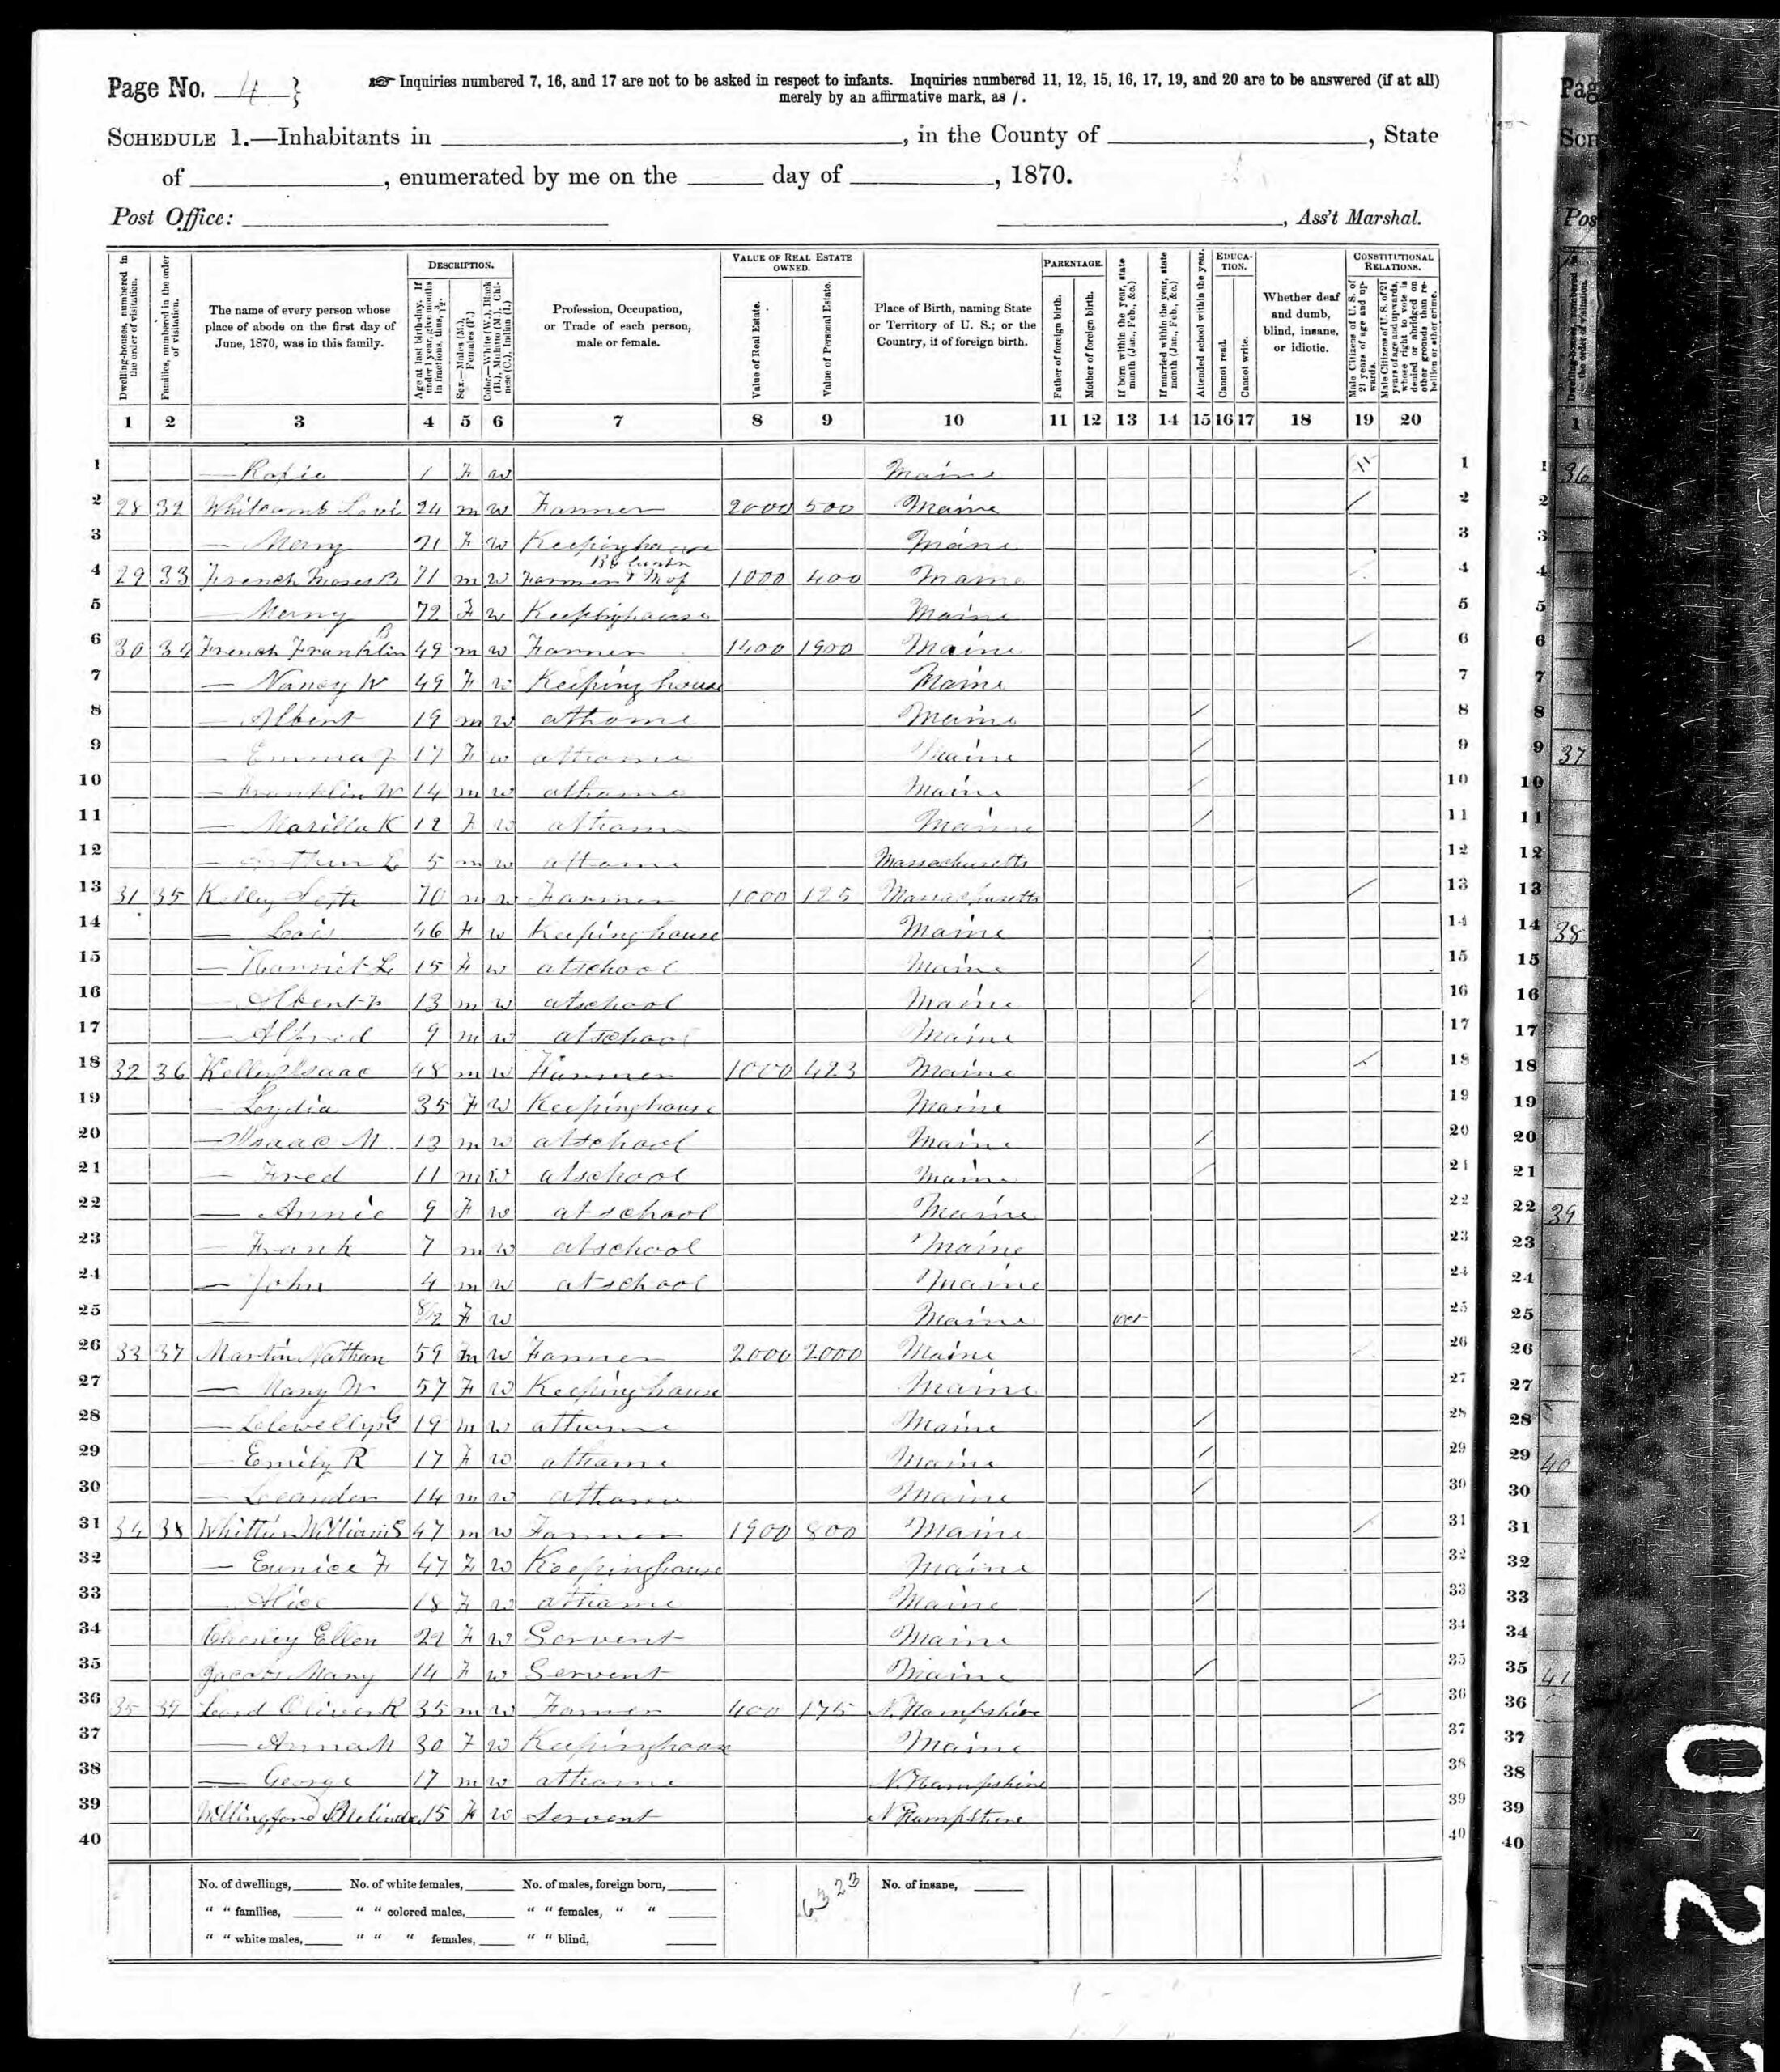 Page No. 4 }
Inquiries numbered 7, 16, and 17 are not to be asked in respect to infants. Inquiries numbered 11, 12, 15, 16, 17, 19, and 20 are to be answered (if at all)
merely by an affirmative mark, as /.
SCHEDULE 1.—Inhabitants in , in the County of , State
of , enumerated by me on the day of , 1870.
Post Office: , Ass't Marshal.
Dwelling-houses, numbered in the order of visitation.
Families, numbered in the order of visitation.
The name of every person whose place of abode on the first day of June, 1870, was in this family.
DESCRIPTION.
Age at last birth-day. If under 1 year, give months in fractions, thus, 3/12.
Sex.—Males (M.), Females (F.)
Color.—White (W.), Black (B.), Mulatto (M.), Chinese (C.), Indian (I.)
Profession, Occupation, or Trade of each person, male or female.
VALUE OF REAL ESTATE OWNED.
Value of Real Estate.
Value of Personal Estate.
Place of Birth, naming State or Territory of U. S.; or the Country, if of foreign birth.
PARENTAGE.
Father of foreign birth.
Mother of foreign birth.
If born within the year, state month (Jan., Feb., &c.)
If married within the year, state month (Jan., Feb., &c.)
Attended school within the year.
EDUCATION.
Cannot read.
Cannot write.
Whether deaf and dumb, blind, insane, or idiotic.
CONSTITUTIONAL RELATIONS.
Male Citizens of U. S. of 21 years of age and upwards.
Male Citizens of U. S. of 21 years of age and upwards, whose right to vote is denied or abridged on other grounds than rebellion or other crime.
1 2 3 4 5 6 7 8 9 10 11 12 13 14 15 16 17 18 19 20
1 — 1 F W Maine 1
2 28 32 Whitcomb Levi 24 M W Farmer 2000 500 Maine / 2
3 — Mary 21 F W Keeping house Maine 3
4 29 33 French Moses B 71 M W Farmer & 1000 400 Maine / 4
5 — Mary 72 F W Keeping house Maine 5
6 30 34 French Franklin B 49 M W Farmer 1400 1900 Maine / 6
7 — Nancy W 49 F W Keeping house Maine 7
8 — Albert 19 M W at home Maine / 8
9 — Emma J 17 F W at home Maine / 9
10 — Franklin W 14 M W at home Maine / 10
11 — Marilla K 12 F W at home Maine / 11
12 — Arthur L 5 M W at home Massachusetts 12
13 31 35 Kelley 70 M W Farmer 1000 125 Massachusetts / / 13
14 — Lois 46 F W Keeping house Maine 14
15 — Harriet L 15 F W at school Maine / 15
16 — Albert 13 M W at school Maine / 16
17 — Alfred 9 M W at school Maine 17
18 32 36 Kelley Isaac 48 M W Farmer 1000 423 Maine / 18
19 — Lydia 35 F W Keeping house Maine 19
20 — Isaac M 13 M W at school Maine / 20
21 — Fred 11 M W at school Maine / 21
22 — Annie 9 F W at school Maine 22
23 — Frank 7 M W at school Maine 23
24 — John 4 M W at school Maine 24
25 — 8/12 F W Maine Oct 25
26 33 37 Martin Nathan 59 M W Farmer 2000 2000 Maine / 26
27 — Mary W 57 F W Keeping house Maine 27
28 — Lelewellyn G 19 M W at home Maine / 28
29 — Emily R 17 F W at home Maine / 29
30 — Leeander 14 M W at home Maine / 30
31 34 38 Whittier William S 47 M W Farmer 1900 800 Maine / 31
32 — Eunice F 47 F W Keeping house Maine 32
33 — Alice 18 F W at home Maine / 33
34 Chesley Ellen 22 F W Servent Maine 34
35 Jacobs Mary 14 F W Servent Maine / 35
36 35 39 Lord Oliver R 35 M W Farmer 400 175 N. Hampshire / 36
37 — Anna M 30 F W Keeping house Maine 37
38 — George 17 M W at home N. Hampshire 38
39 Melinda 15 F W Servent N Hampshire 39
40 40
No. of dwellings, No. of white females, No. of males, foreign born, 6323 No. of insane,
" " families, " " colored males, " " females, " "
" " white males, " " " females, " " blind,